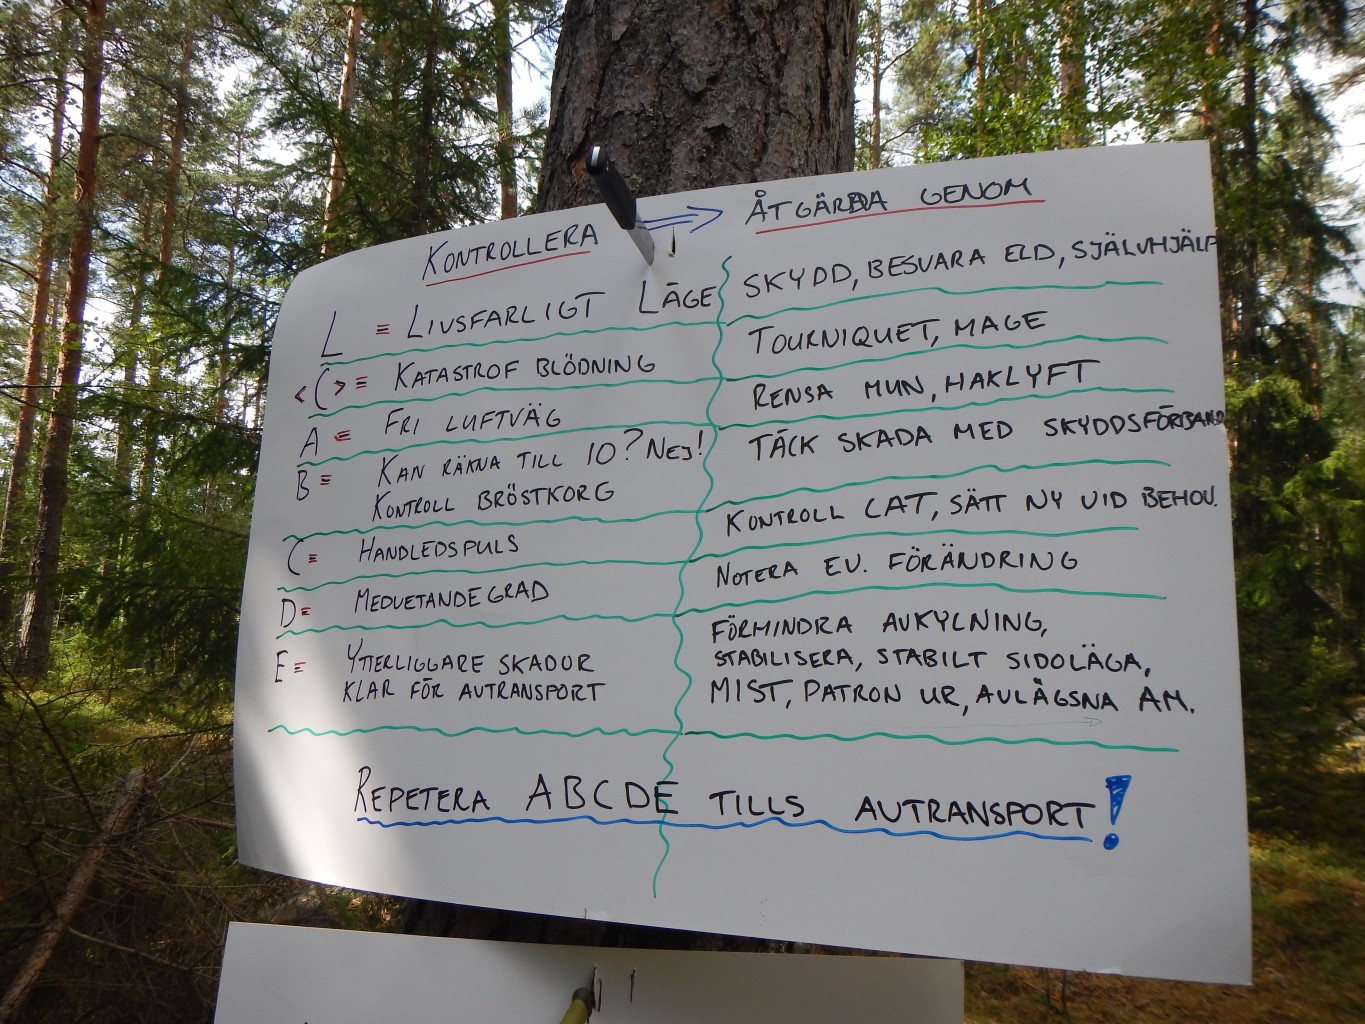 KONTROLLERA ⇒ ÅTGÄRDA GENOM
L = LIVSFARLIGT LÄGE SKYDD, BESVARA ELD, SJÄLVHJÄLP
<C> = KATASTROF BLÖDNING TOURNIQUET, MAGE
A = FRI LUFTVÄG RENSA MUN, HAKLYFT
B = KAN RÄKNA TILL 10? NEJ! TÄCK SKADA MED SKYDDSFÖRBAND
KONTROLL BRÖSTKORG
C = HANDLEDSPULS KONTROLL CAT, SÄTT NY VID BEHOV.
D = MEDVETANDEGRAD NOTERA EV. FÖRÄNDRING
E = YTTERLIGGARE SKADOR FÖRMINDRA AVKYLNING,
KLAR FÖR AVTRANSPORT STABILISERA, STABILT SIDOLÄGA,
MIST, PATRON UR, AVLÄGSNA AM.
REPETERA ABCDE TILLS AVTRANSPORT!